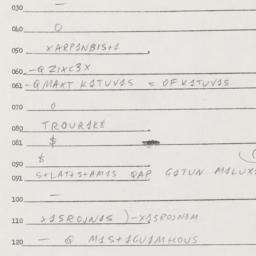 030 —
040 0
050 XARPINBIS+1
060 -Q ZIXC3X
061 -Q MAXT KITUVIS = OF KITUVIS
070 0
080 TROURIK$
081 $
090 $
091 S+LAT+S+AMIS QAP GITUN MILUX
100 —
110 XISROJNIS )-XISROJNIM
120 — Q MIS+IGUIMHOUS